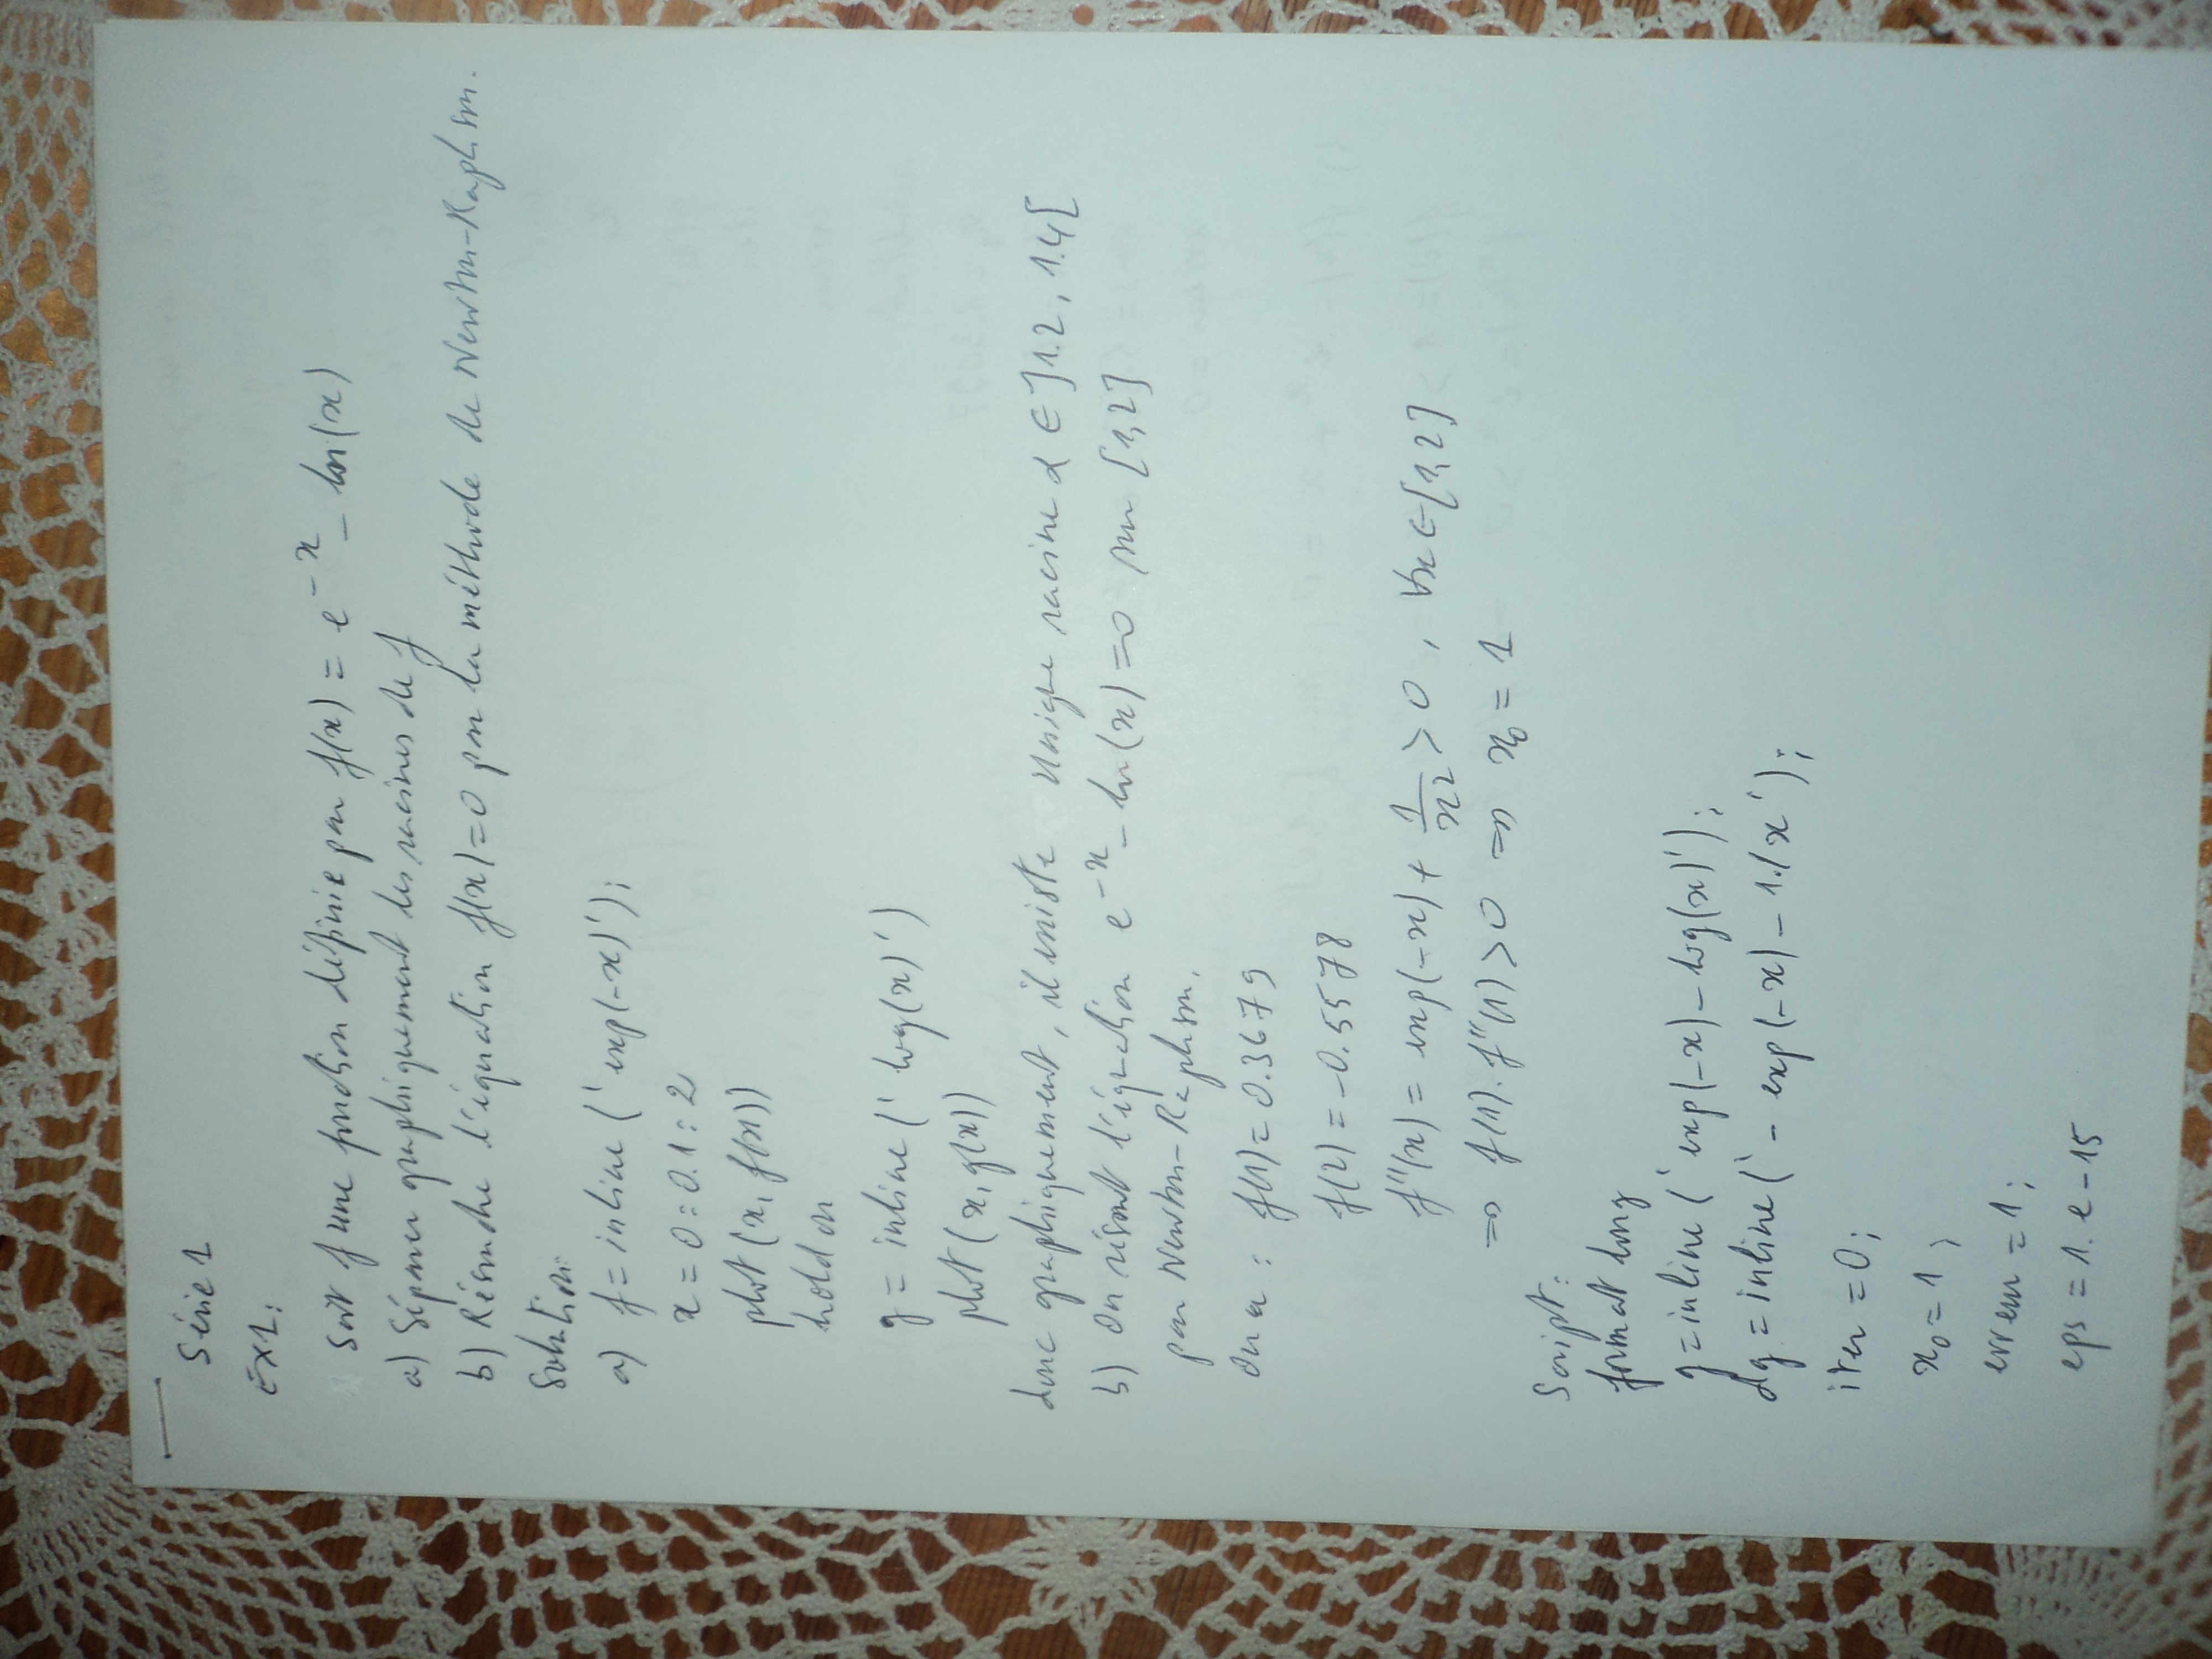 Série 1
Ex1:
Soit f une fonction définie par f(x) = e^{-x} - ln(x)
a) Séparer graphiquement les racines de f
b) Résoudre l'équation f(x)=0 par la méthode de Newton-Raphson.
Solution:
a) f = inline('exp(-x)');
x = 0:0.1:2
plot(x, f(x))
hold on
g = inline('log(x)')
plot(x, g(x))
donc graphiquement, il existe unique racine α ∈ ]1.2, 1.4[
b) on résout l'équation e^{-x} - ln(x) = 0 sur [1,2]
par Newton-Raphson.
On a : f(1) = 0.3679
f(2) = -0.5578
f''(x) = exp(-x) + 1/x² > 0, ∀x ∈ [1,2]
⇒ f(1).f''(1) > 0 ⇒ x₀ = 1
Script:
format long
g = inline('exp(-x)-log(x)');
dg = inline('-exp(-x)-1./x');
iter = 0;
x₀ = 1;
erreur = 1;
eps = 1.e-15